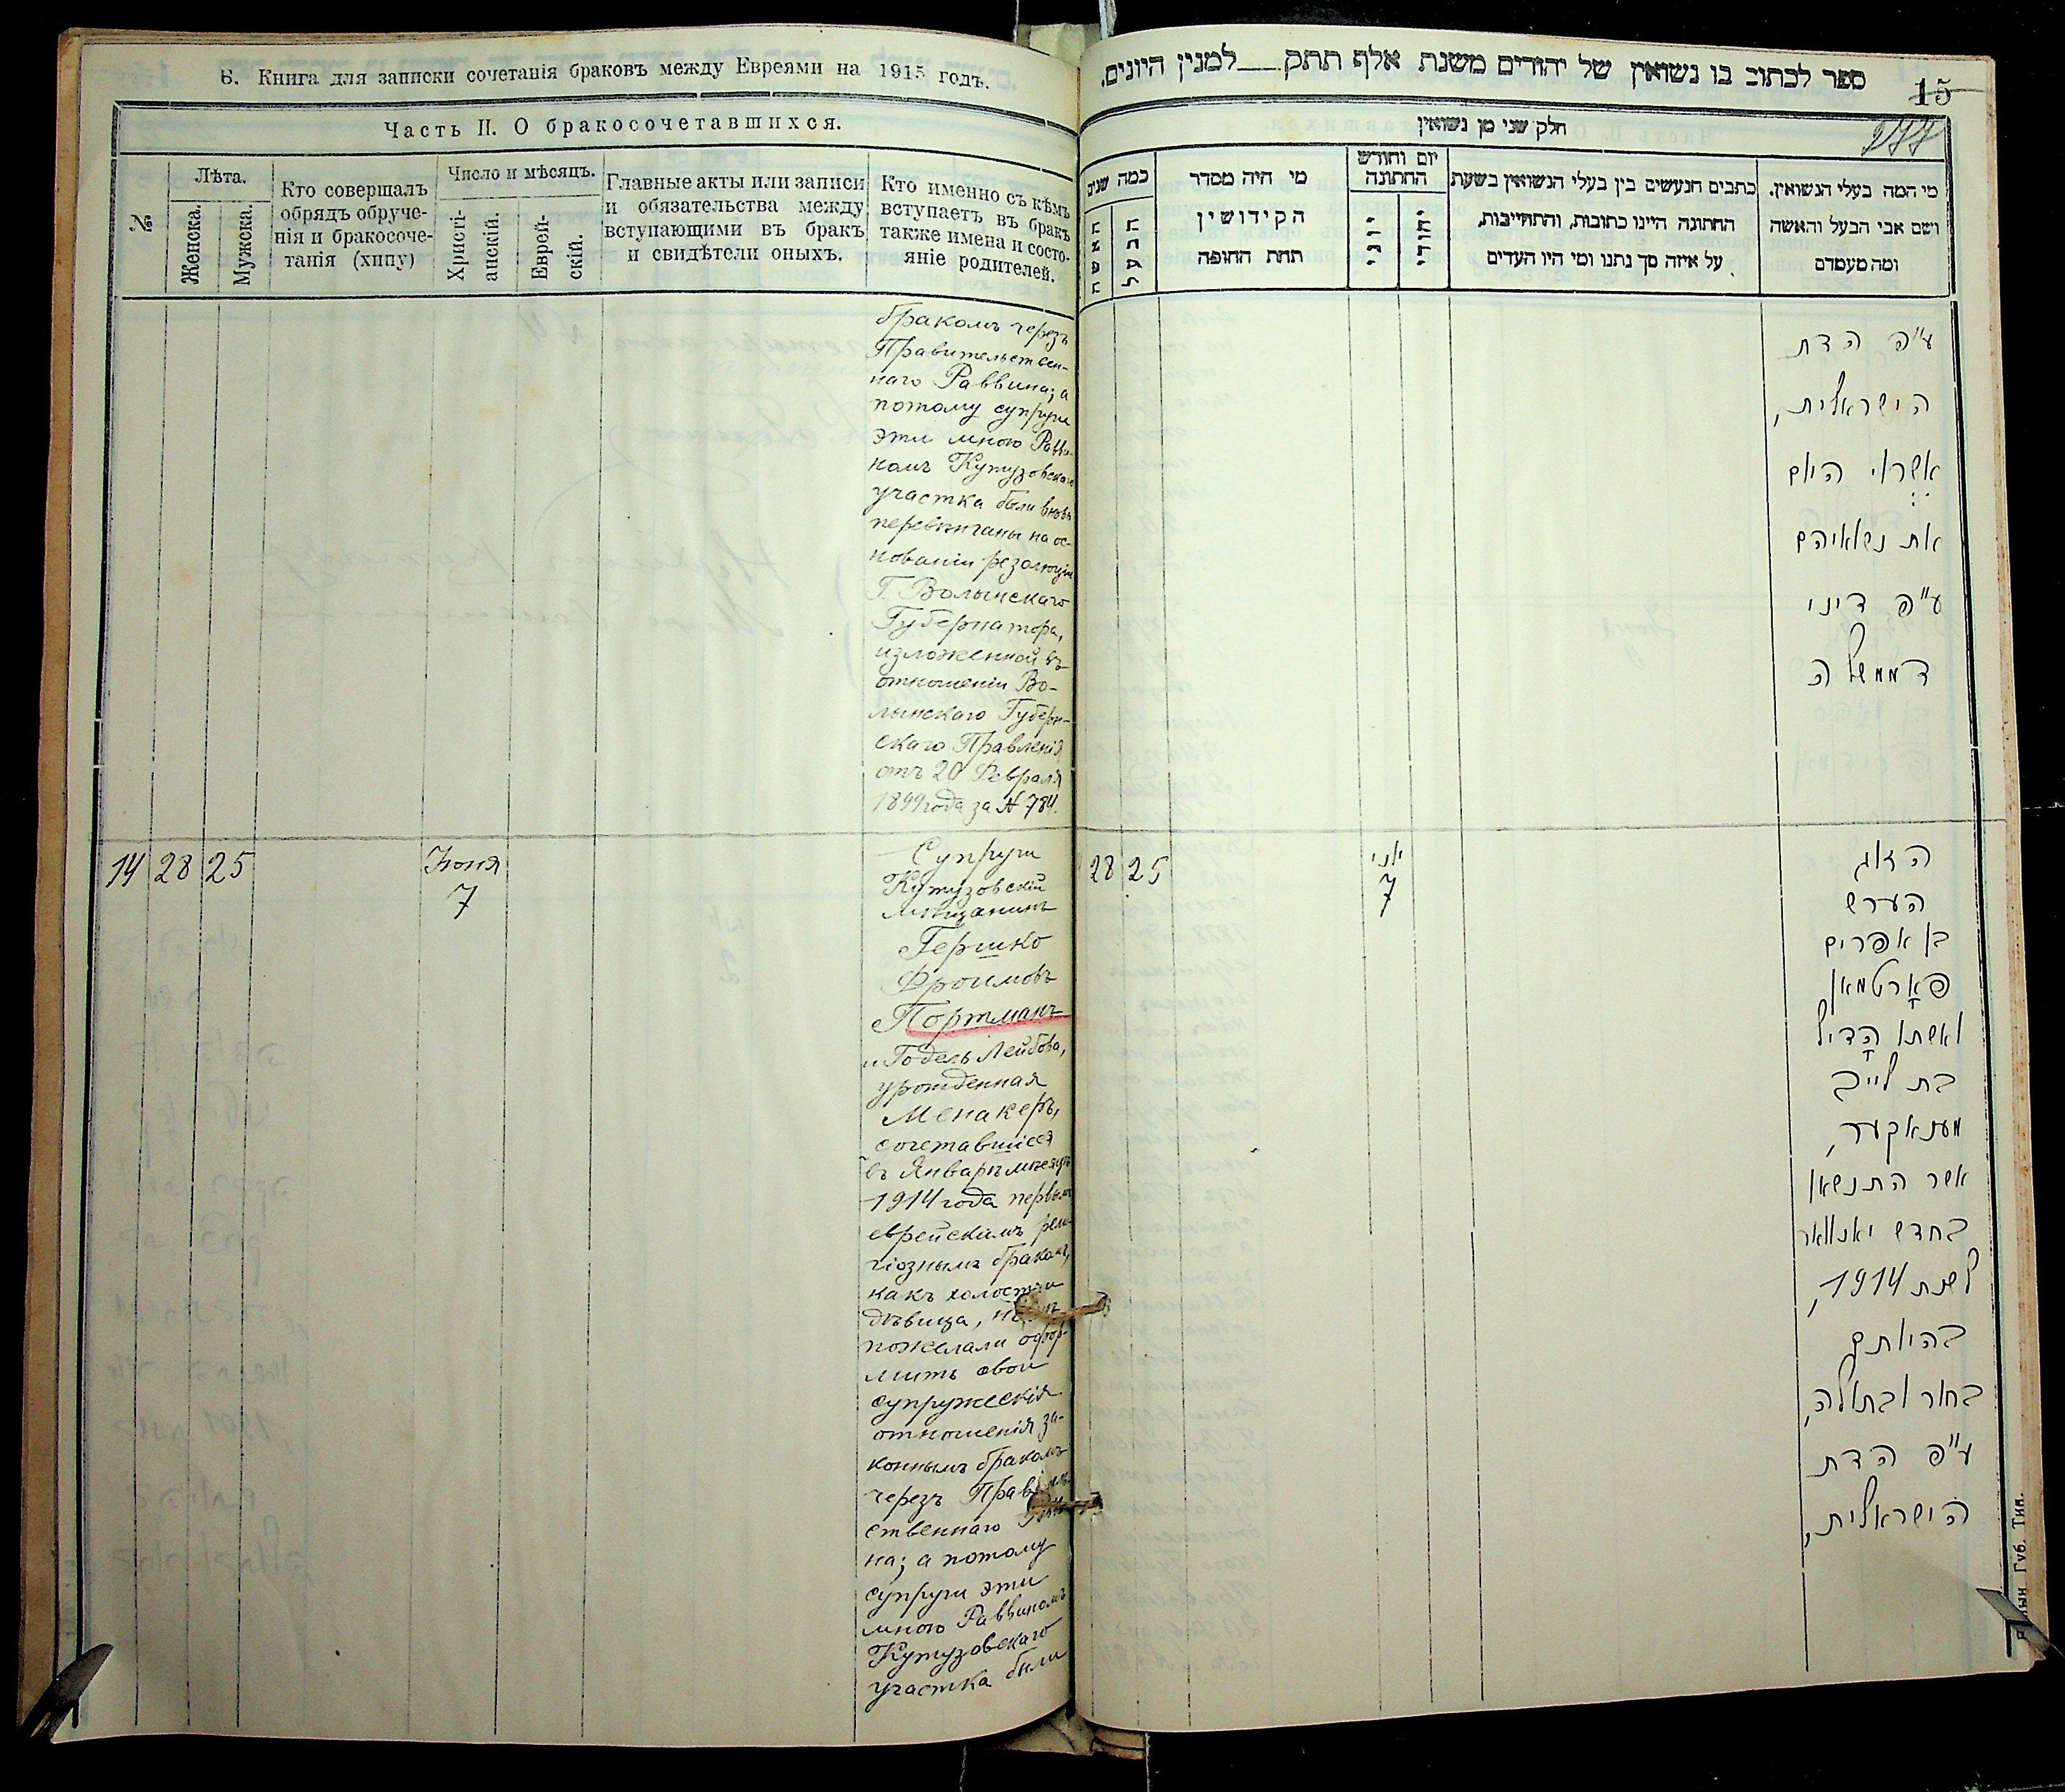 Б. Книга для записки сочетанія браковъ между Евреями на 1915 годъ.
Часть II. О бракосочетавшихся.
№
Лѣта.
Женска.
Мужска.
Кто совершалъ
обрядъ обруче-
нія и бракосоче-
танія (хипу)
Число и мѣсяцъ.
Христі-
анскій.
Еврей-
скій.
Главные акты или записи
и обязательства между
вступающими въ бракъ
и свидѣтели оныхъ.
Кто именно съ кѣмъ
вступаетъ въ бракъ
также имена и состо-
яніе родителей.
бракомъ черезъ
Правительствен-
наго Раввина; а
потому супруги
эти мною Равви-
номъ Кутузовскаго
участка были вновь
перевѣнчаны на ос-
нованіи резолюціи
Г. Волынскаго
Губернатора,
изложенной въ
отношеніи Во-
лынскаго Губерн-
скаго Правленія
отъ 20 Февраля
1899 года за № 784.
14 28 25
Іюня
7
Супруги
Кутузовскій
мѣщанинъ
Гершко
Фроимовъ
Портманъ
и Годель Лейбова,
урожденная
Менакеръ,
сочетавшіеся
въ Январѣ мѣсяцѣ
1914 года первымъ
еврейскимъ рели-
гіознымъ бракомъ,
какъ холостъ и
дѣвица,
пожелали офор-
мить свои
супружескія
отношенія за-
коннымъ бракомъ
черезъ
ственнаго
на; а потому
супруги эти
мною Раввиномъ
Кутузовскаго
участка были
ספר לכתוב בו נשואין של יהודים משנת אלף תתק___ למנין היונים.
15
277
חלק שני מן נשואין
מי המה בעלי הנשואין.
ושם אבי הבעל והאשה
ומה מעמדם
כתבים הנעשים בין בעלי הנשואין בשעת
החתונה היינו כתובות, והתחייבות,
על איזה סך נתנו ומי היו העדים
יום וחודש
החתונה
יהודי
יוני
מי היה מסדר
הקידושין
תחת החופה
כמה שנים
הבעל
האשה
ע״פ הדת
הישראלית,
אשרו היום
את נשואיהם
ע״פ דיני
הממשלה
28 25
יוני
7
הזוג
הערש
בן אפרים
פאָרטמאן
ואשתו האָדיל
בת לייב
מענאקער,
אשר התנשאו
בחדש יאנוואר
לשנת 1914,
בהיותם
בחור ובתולה,
ע״פ הדת
הישראלית,
Губ. Тип.